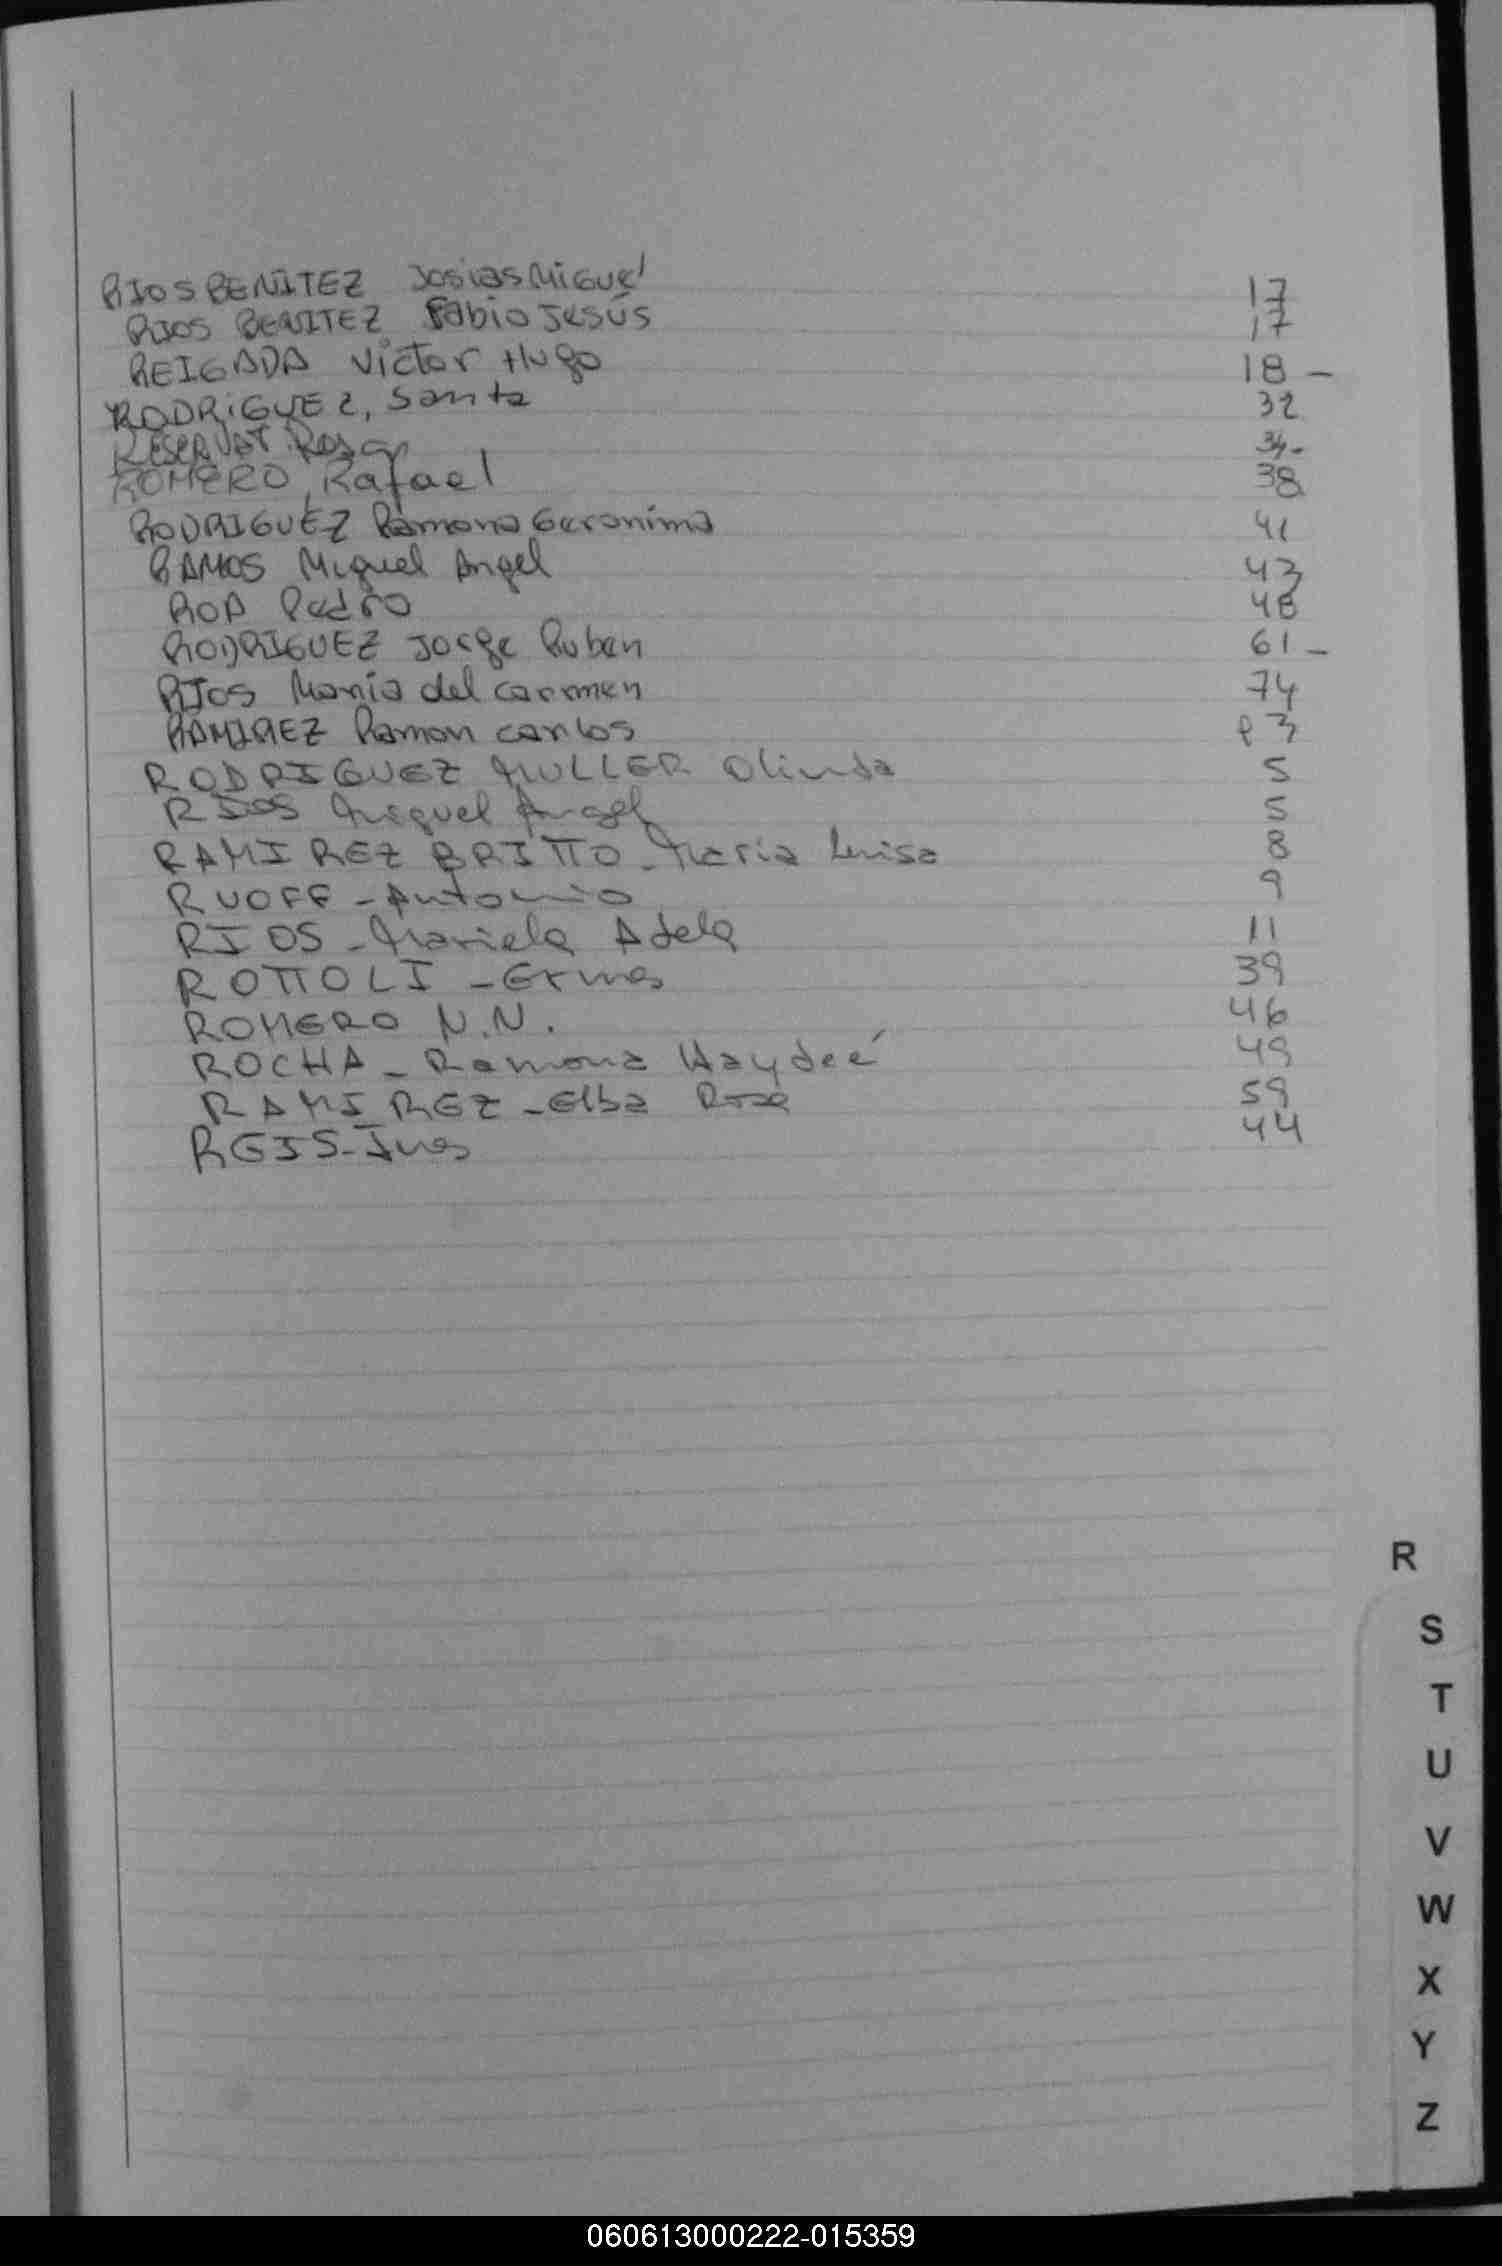 RIOS BENITEZ Josias Miguel 17
RIOS BENITEZ Fabio Jesús 17
REIGADA Victor Hugo 18 -
RODRIGUEZ, Santa 32
Rosa 34-
ROMERO, Rafael 38
RODRIGUEZ Ramona Geronima 41
RAMOS Miguel Angel 43
ROA Pedro 48
RODRIGUEZ Jorge Ruben 61 -
RIOS María del Carmen 74
RAMIREZ Ramon Carlos 83
RODRIGUEZ MULLER Olinda 5
RIOS Miguel Angel 5
RAMIREZ BRITTO - Maria Luisa 8
RUOFF - Antonio 9
RIOS - Mariela Adela 11
ROTTOLI - Ermes 39
ROMERO N.N. 46
ROCHA - Ramona Haydeé 49
RAMIREZ - Elba Rosa 59
REIS - Ines 44
R
S
T
U
V
W
X
Y
Z
060613000222-015359